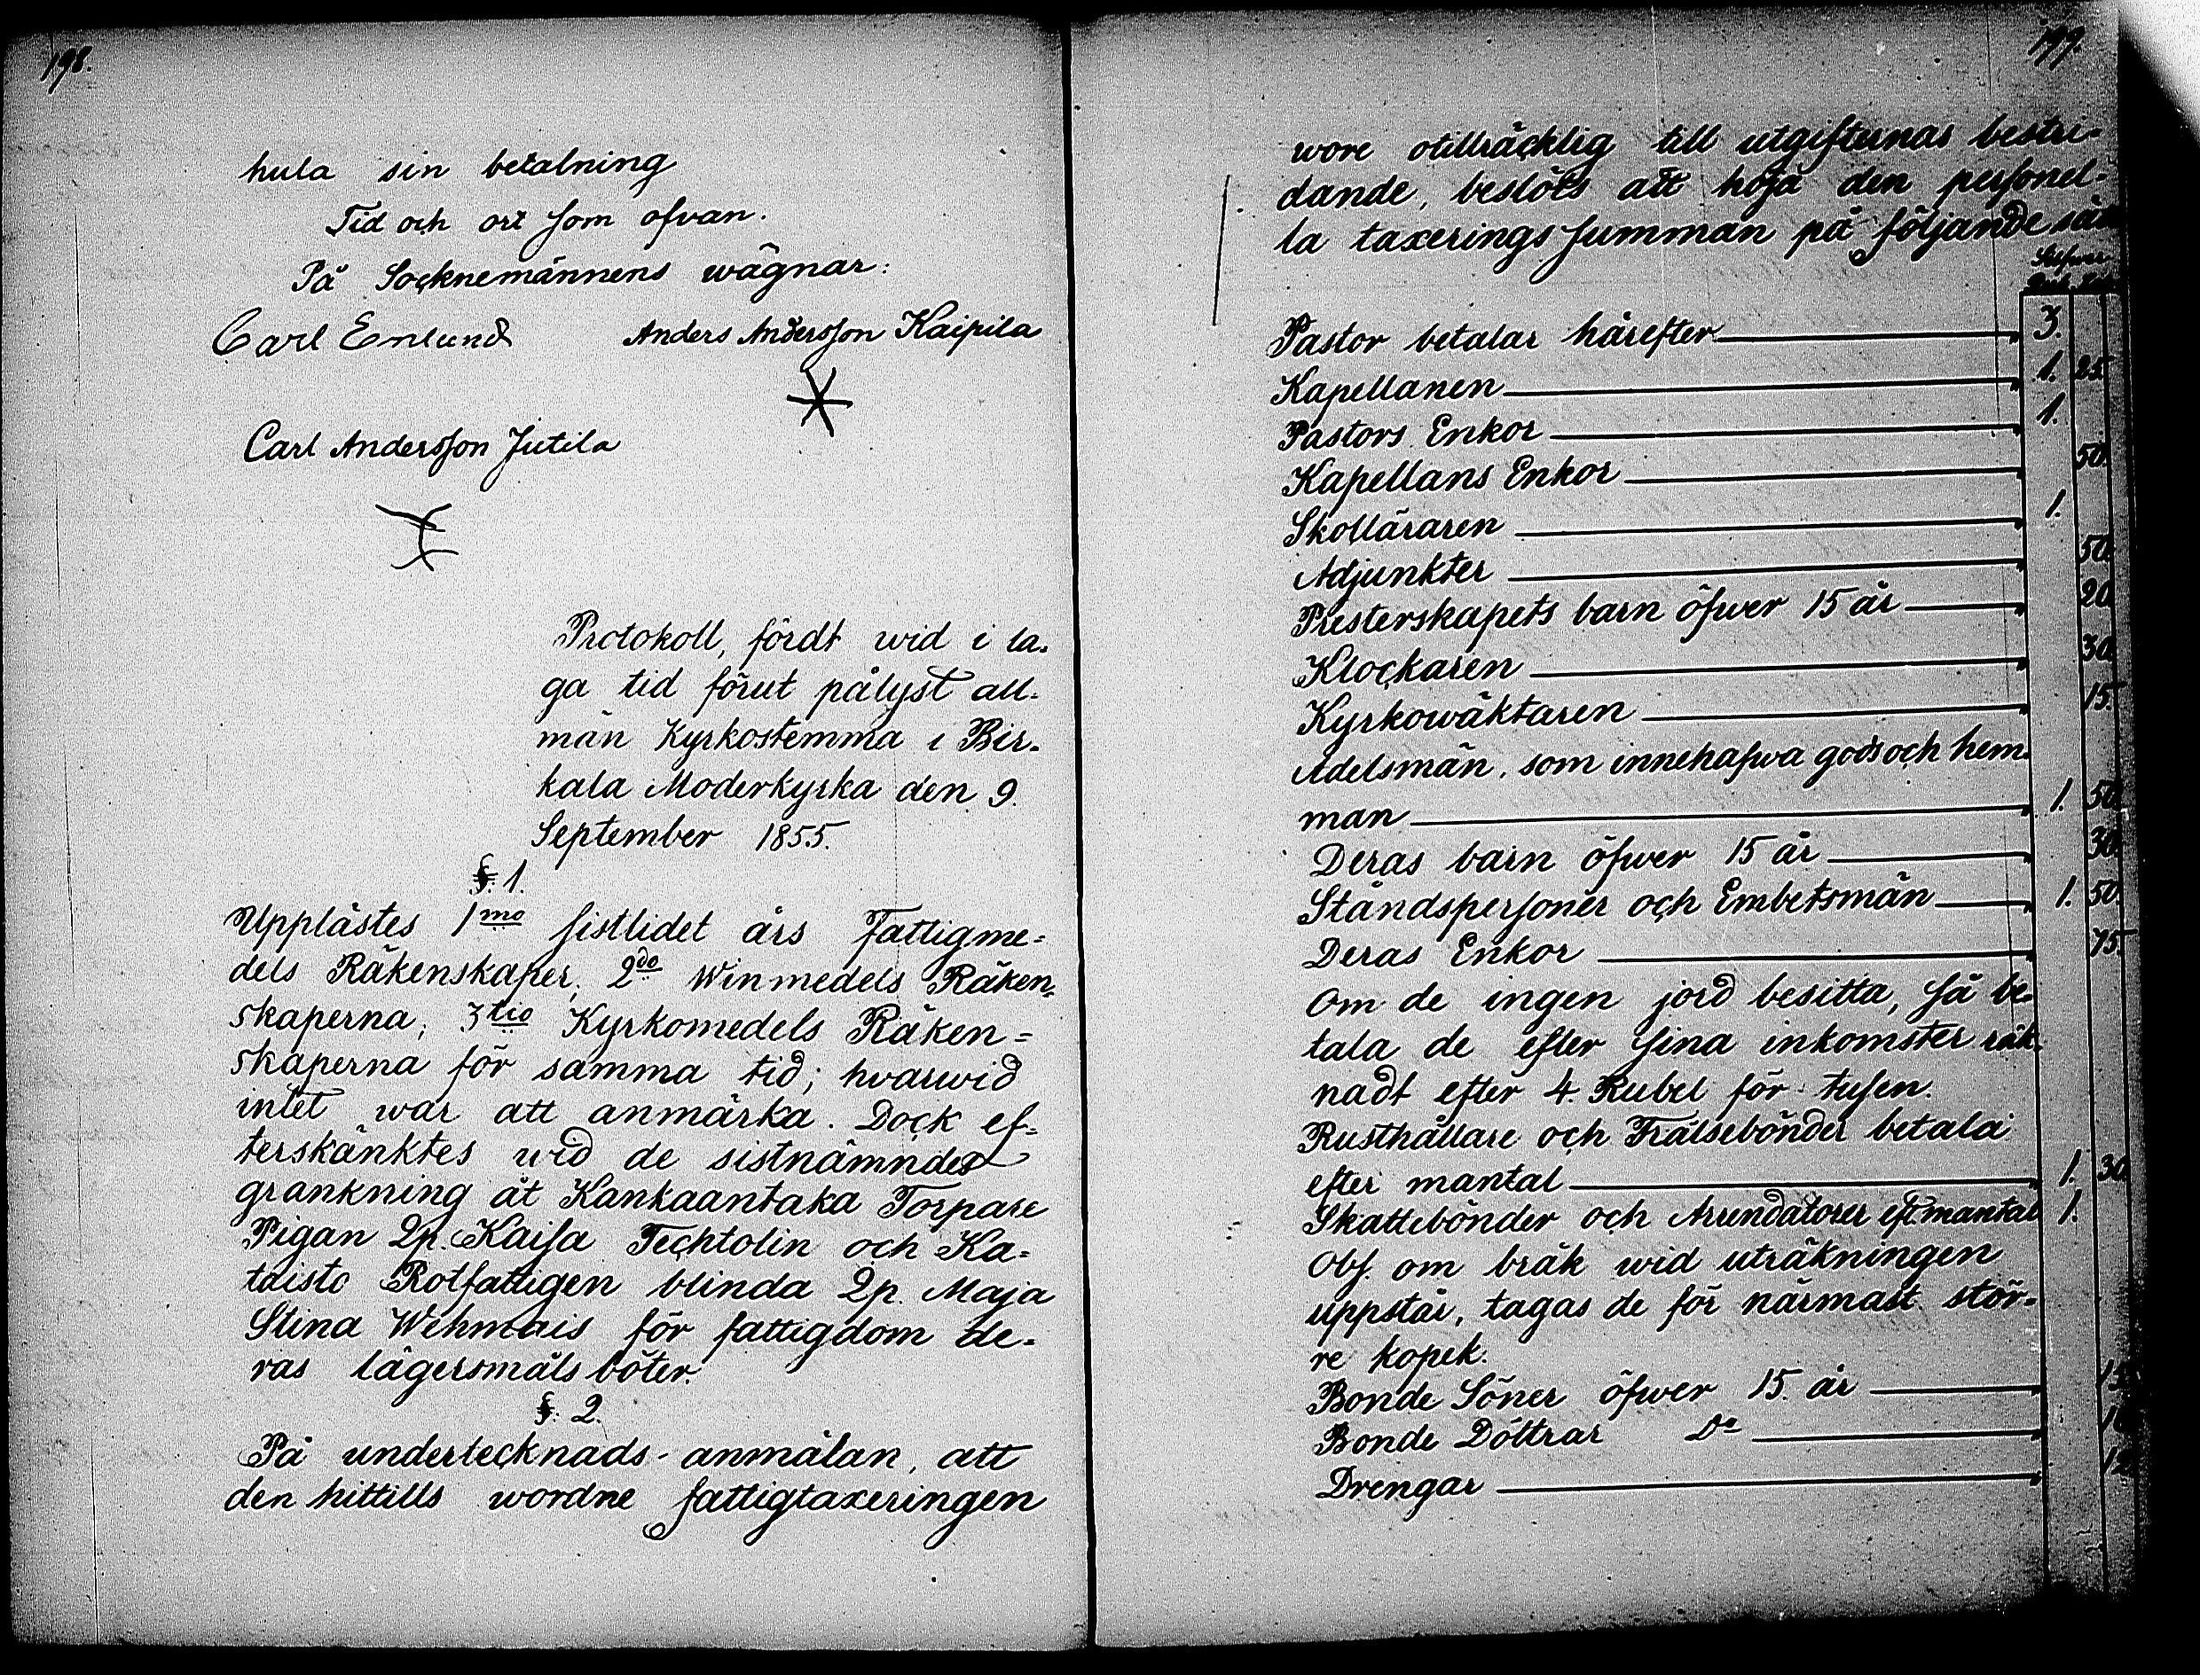 198.
hula sin betalning
Tid och ort som ofvan.
På Socknemännens wägnar:
Carl Enlund Anders Andersson Kaipila
Carl Andersson Jutila
Protokoll, fördt wid i la-
ga tid förut pålyst all-
män Kyrkostemma i Bir-
kala Moderkyrka den 9.
September 1855.
§. 1.
Upplästes 1mo sistlidet års Fattigme-
dels Räkenskaper, 2do Winmedels Räken-
skaperna, 3tio Kyrkomedels Räken-
skaperna för samma tid; hvarwid
intet war att anmärka. Dock ef-
terskänktes wid de sistnämndes
grankning åt Kankaantaka Torpare
Pigan Qp. Kaisa Techtolin och Ka-
taisto Rotfattigen blinda Qp. Maja
Stina Wehmais för fattigdom de-
ras lägersmåls böter.
§. 2.
På undertecknads anmälan, att
den hittills wordne fattigtaxeringen
199.
wore otillräcklig till utgifternas bestri-
dande, beslöts att höja den personel-
la taxerings summan på följande sätt
Pastor betalar härefter 3.
Kapellanen 1. 25
Pastors Enkor 1.
Kapellans Enkor 50.
Skolläraren 1.
Adjunkter 50
Presterskapets barn öfwer 15 år 20
Klockaren 30
Kyrkowäktaren 15.
Adelsmän, som innehafwa gods och hem-
man 1. 50
Deras barn öfwer 15 år 30.
Ståndspersoner och Embetsmän 1. 50.
Deras Enkor 75.
Om de ingen jord besitta, så be-
tala de efter sina inkomster räk-
nadt efter 4. Rubel för tusen.
Rusthållare och Frälsebönder betala
efter mantal 1. 30
Skattebönder och Arrendatorer eft. mantal 1.
Obs. om bråk wid uträkningen
uppstår, tagas de för närmast stör-
re kopek.
Bonde Söner öfwer 15. år 15
Bonde Döttrar Do 10
Drengar 12